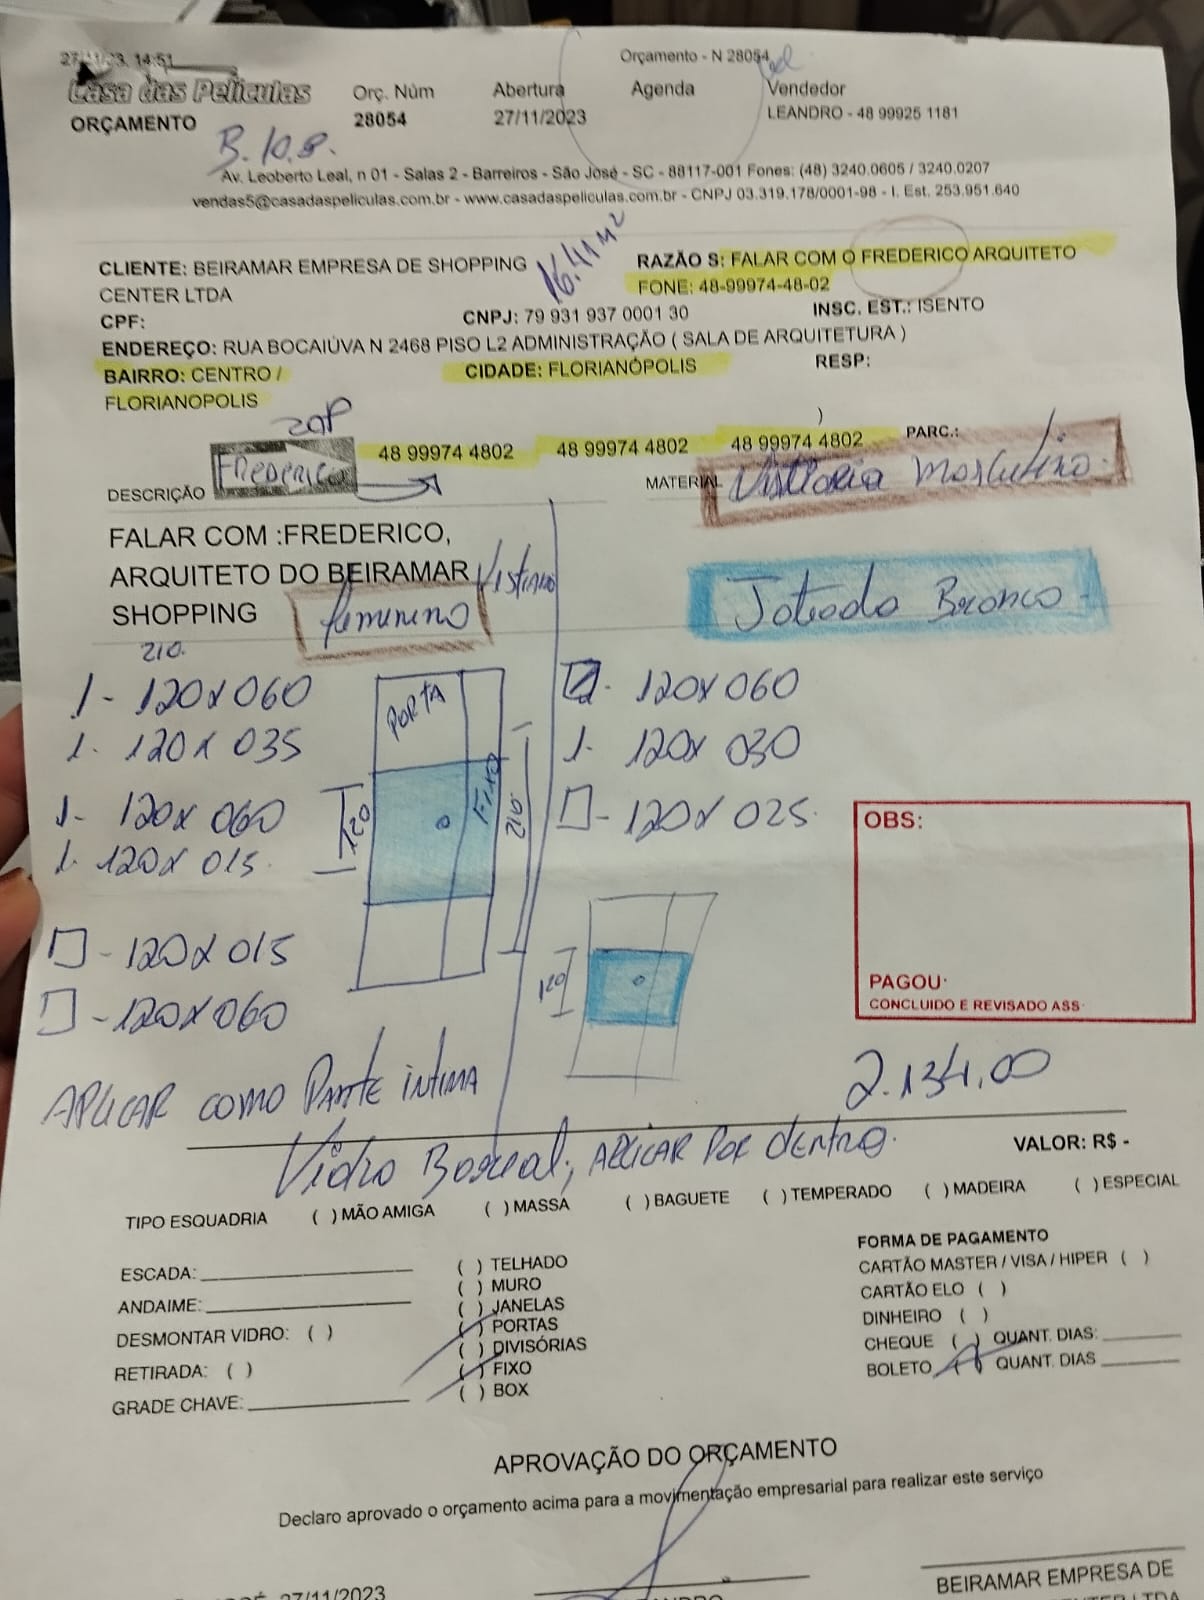 14:51
Orçamento - N 28054
Casa das Películas
Orç. Núm
Abertura
Agenda
Vendedor
ORÇAMENTO
28054
27/11/2023
LEANDRO - 48 99925 1181
Av. Leoberto Leal, n 01 - Salas 2 - Barreiros - São José - SC - 88117-001 Fones: (48) 3240.0605 / 3240.0207
vendas5@casadaspeliculas.com.br - www.casadaspeliculas.com.br - CNPJ 03.319.178/0001-98 - I. Est. 253.951.640
16.41 m²
CLIENTE: BEIRAMAR EMPRESA DE SHOPPING
CENTER LTDA
RAZÃO S: FALAR COM O FREDERICO ARQUITETO
FONE: 48-99974-48-02
CPF:
CNPJ: 79 931 937 0001 30
INSC. EST.: ISENTO
ENDEREÇO: RUA BOCAIÚVA N 2468 PISO L2 ADMINISTRAÇÃO ( SALA DE ARQUITETURA )
BAIRRO: CENTRO /
FLORIANOPOLIS
CIDADE: FLORIANÓPOLIS
RESP:
ZAP
)
Frederico
48 99974 4802
48 99974 4802
48 99974 4802
PARC.:
DESCRIÇÃO
MATERIAL
FALAR COM :FREDERICO,
ARQUITETO DO BEIRAMAR
SHOPPING
feminino
Jateado Branco
210.
1 - 120x060
1. 120x035
1. 120x060
1. 120x015.
- 120x015
- 120x060
PORTA
FIXO
120
210
- 120x060
1. 120x030
- 120x025.
120
OBS:
PAGOU:
CONCLUIDO E REVISADO ASS:
APLICAR COMO PARTE íNTIMA
2.134,00
Vidro Boreal, APLICAR POR dENTRO.
VALOR: R$ -
TIPO ESQUADRIA ( ) MÃO AMIGA ( ) MASSA ( ) BAGUETE ( ) TEMPERADO ( ) MADEIRA ( ) ESPECIAL
ESCADA:
ANDAIME:
DESMONTAR VIDRO: ( )
RETIRADA: ( )
GRADE CHAVE:
( ) TELHADO
( ) MURO
( ) JANELAS
( ) PORTAS
( ) DIVISÓRIAS
( ) FIXO
( ) BOX
FORMA DE PAGAMENTO
CARTÃO MASTER / VISA / HIPER ( )
CARTÃO ELO ( )
DINHEIRO ( )
CHEQUE ( ) QUANT. DIAS:
BOLETO ( ) QUANT. DIAS
APROVAÇÃO DO ORÇAMENTO
Declaro aprovado o orçamento acima para a movimentação empresarial para realizar este serviço
27/11/2023
BEIRAMAR EMPRESA DE